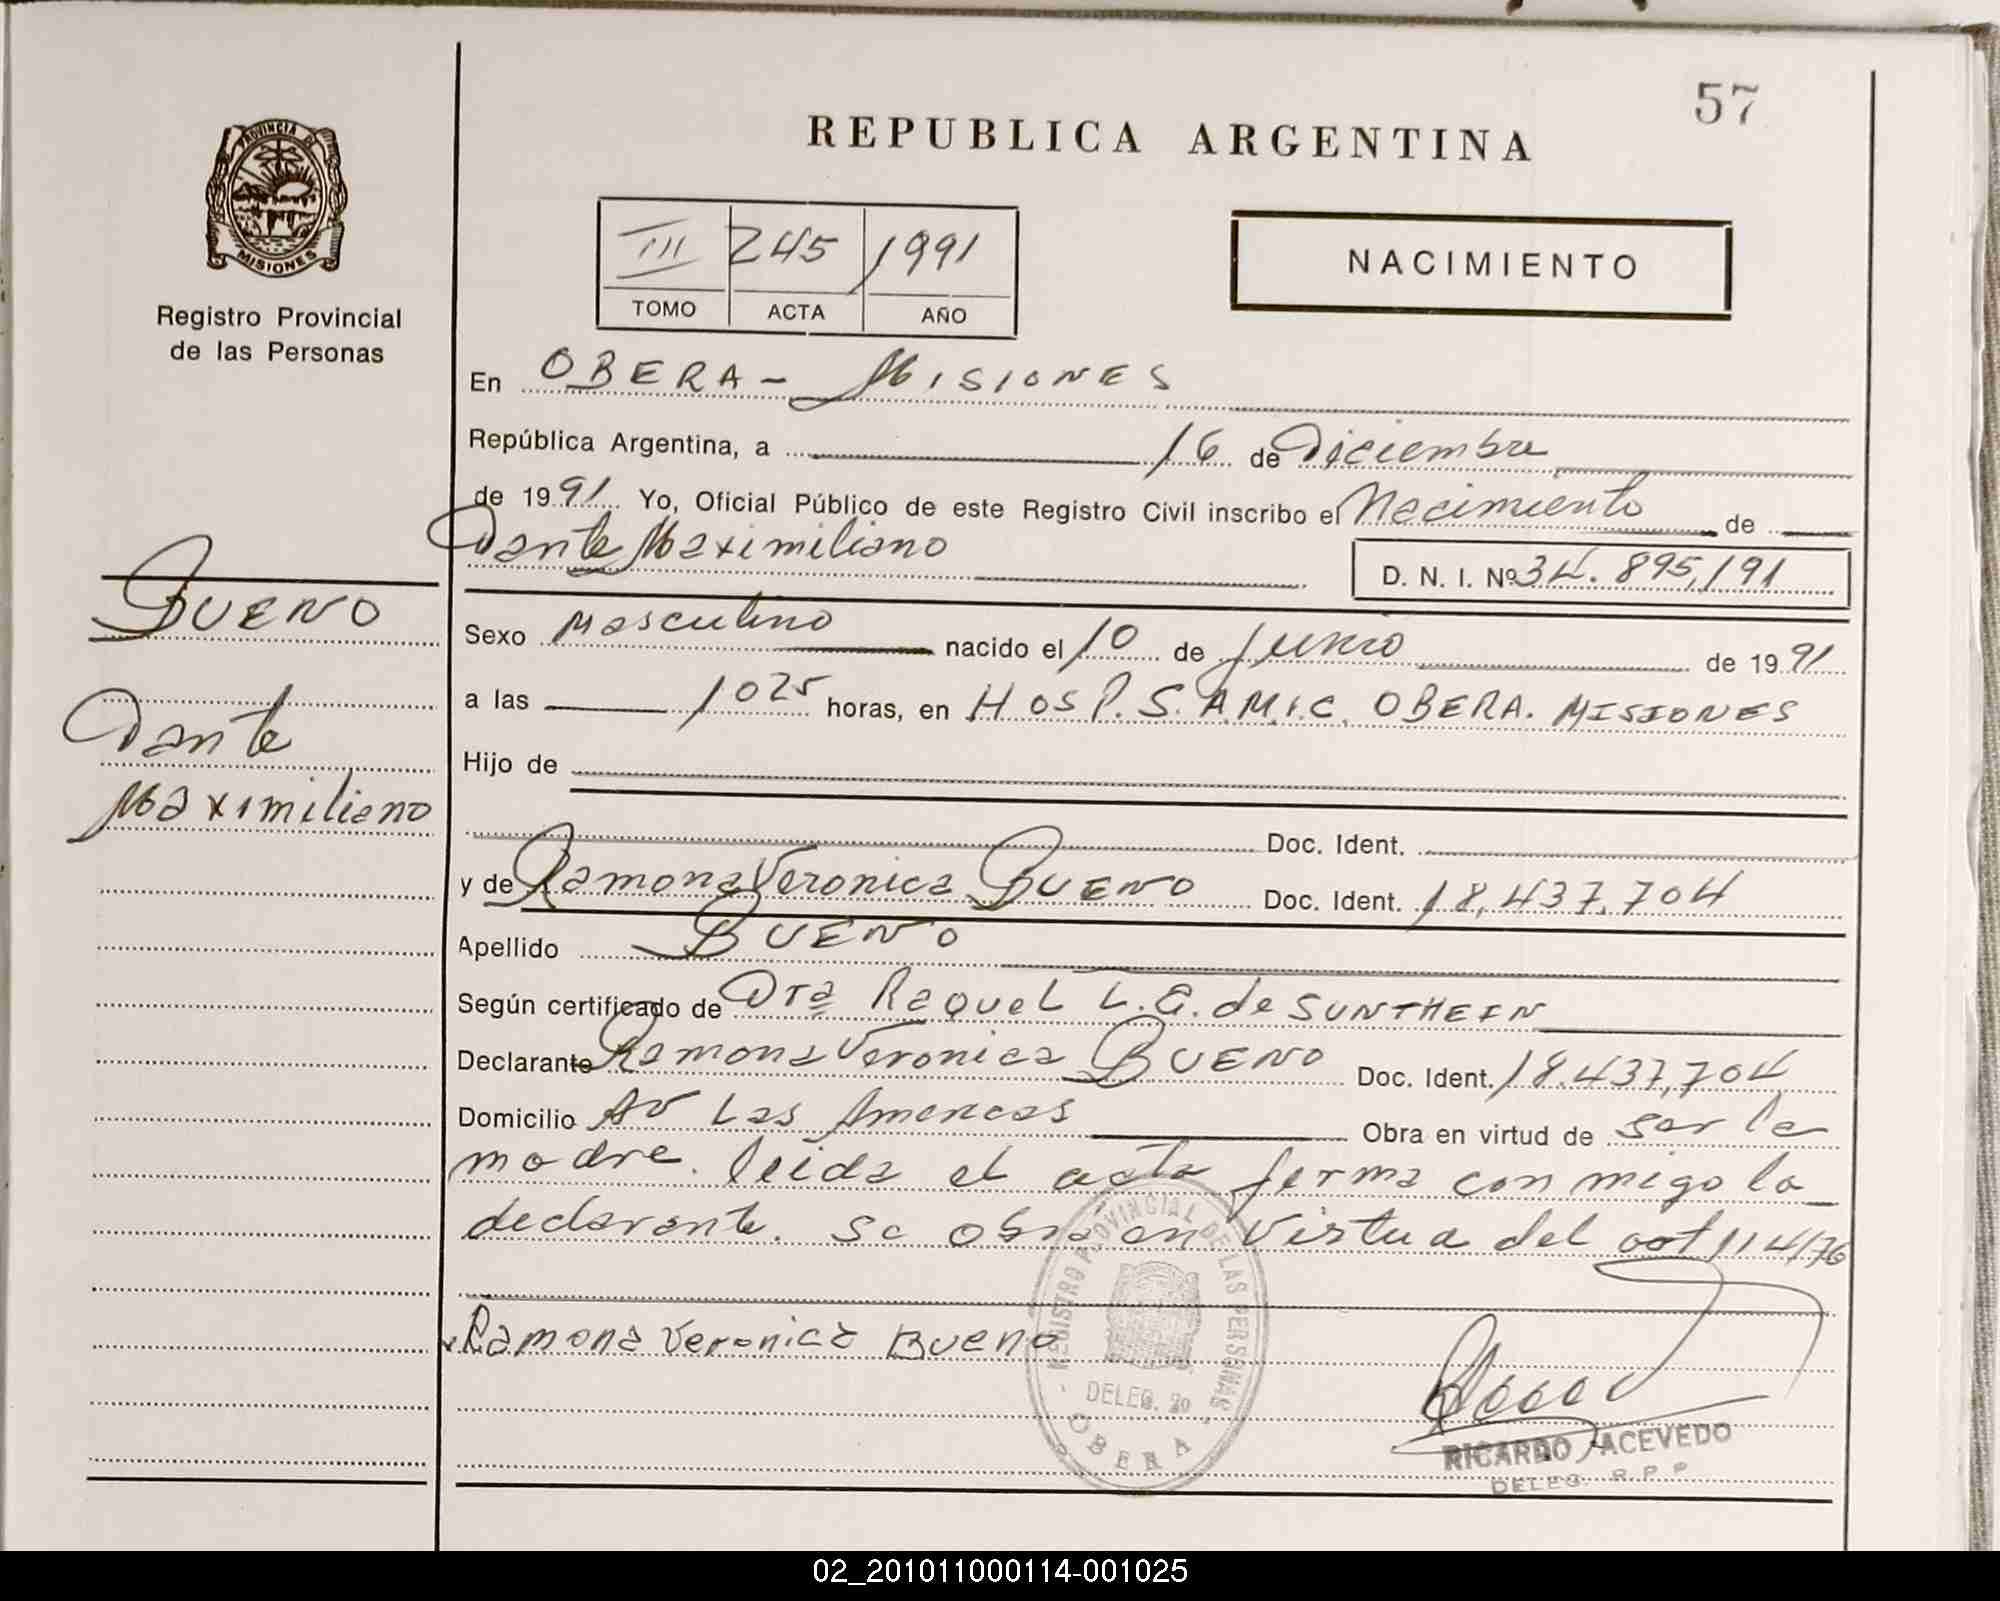 57
REPUBLICA ARGENTINA
PROVINCIA DE
MISIONES
Registro Provincial
de las Personas
III 245 1991
TOMO ACTA AÑO
NACIMIENTO
En OBERA - MISIONES
República Argentina, a 16 de Diciembre
de 1991 Yo, Oficial Público de este Registro Civil inscribo el Nacimiento de
Dante Maximiliano
D. N. I. Nº 34.895,191
BUENO
Dante
Maximiliano
Sexo Masculino nacido el 10 de Junio de 1991
a las 1025 horas, en HOSP. S.A.M.I.C. OBERA. MISIONES
Hijo de
Doc. Ident.
y de Ramona Veronica BUENO Doc. Ident. 18,437,704
Apellido BUENO
Según certificado de Dra Raquel L. G. de SUNTHEIN
Declarante Ramona Veronica BUENO Doc. Ident. 18.437,704
Domicilio Av Las Americas Obra en virtud de ser la
madre. leida el acta firma conmigo la
declarante. Se obra en Virtua del 114/76
Ramona Veronica Bueno
REGISTRO PROVINCIAL DE LAS PERSONAS
DELEG. 20
OBERA
RICARDO ACEVEDO
DELEG. R.P.P
02_201011000114-001025